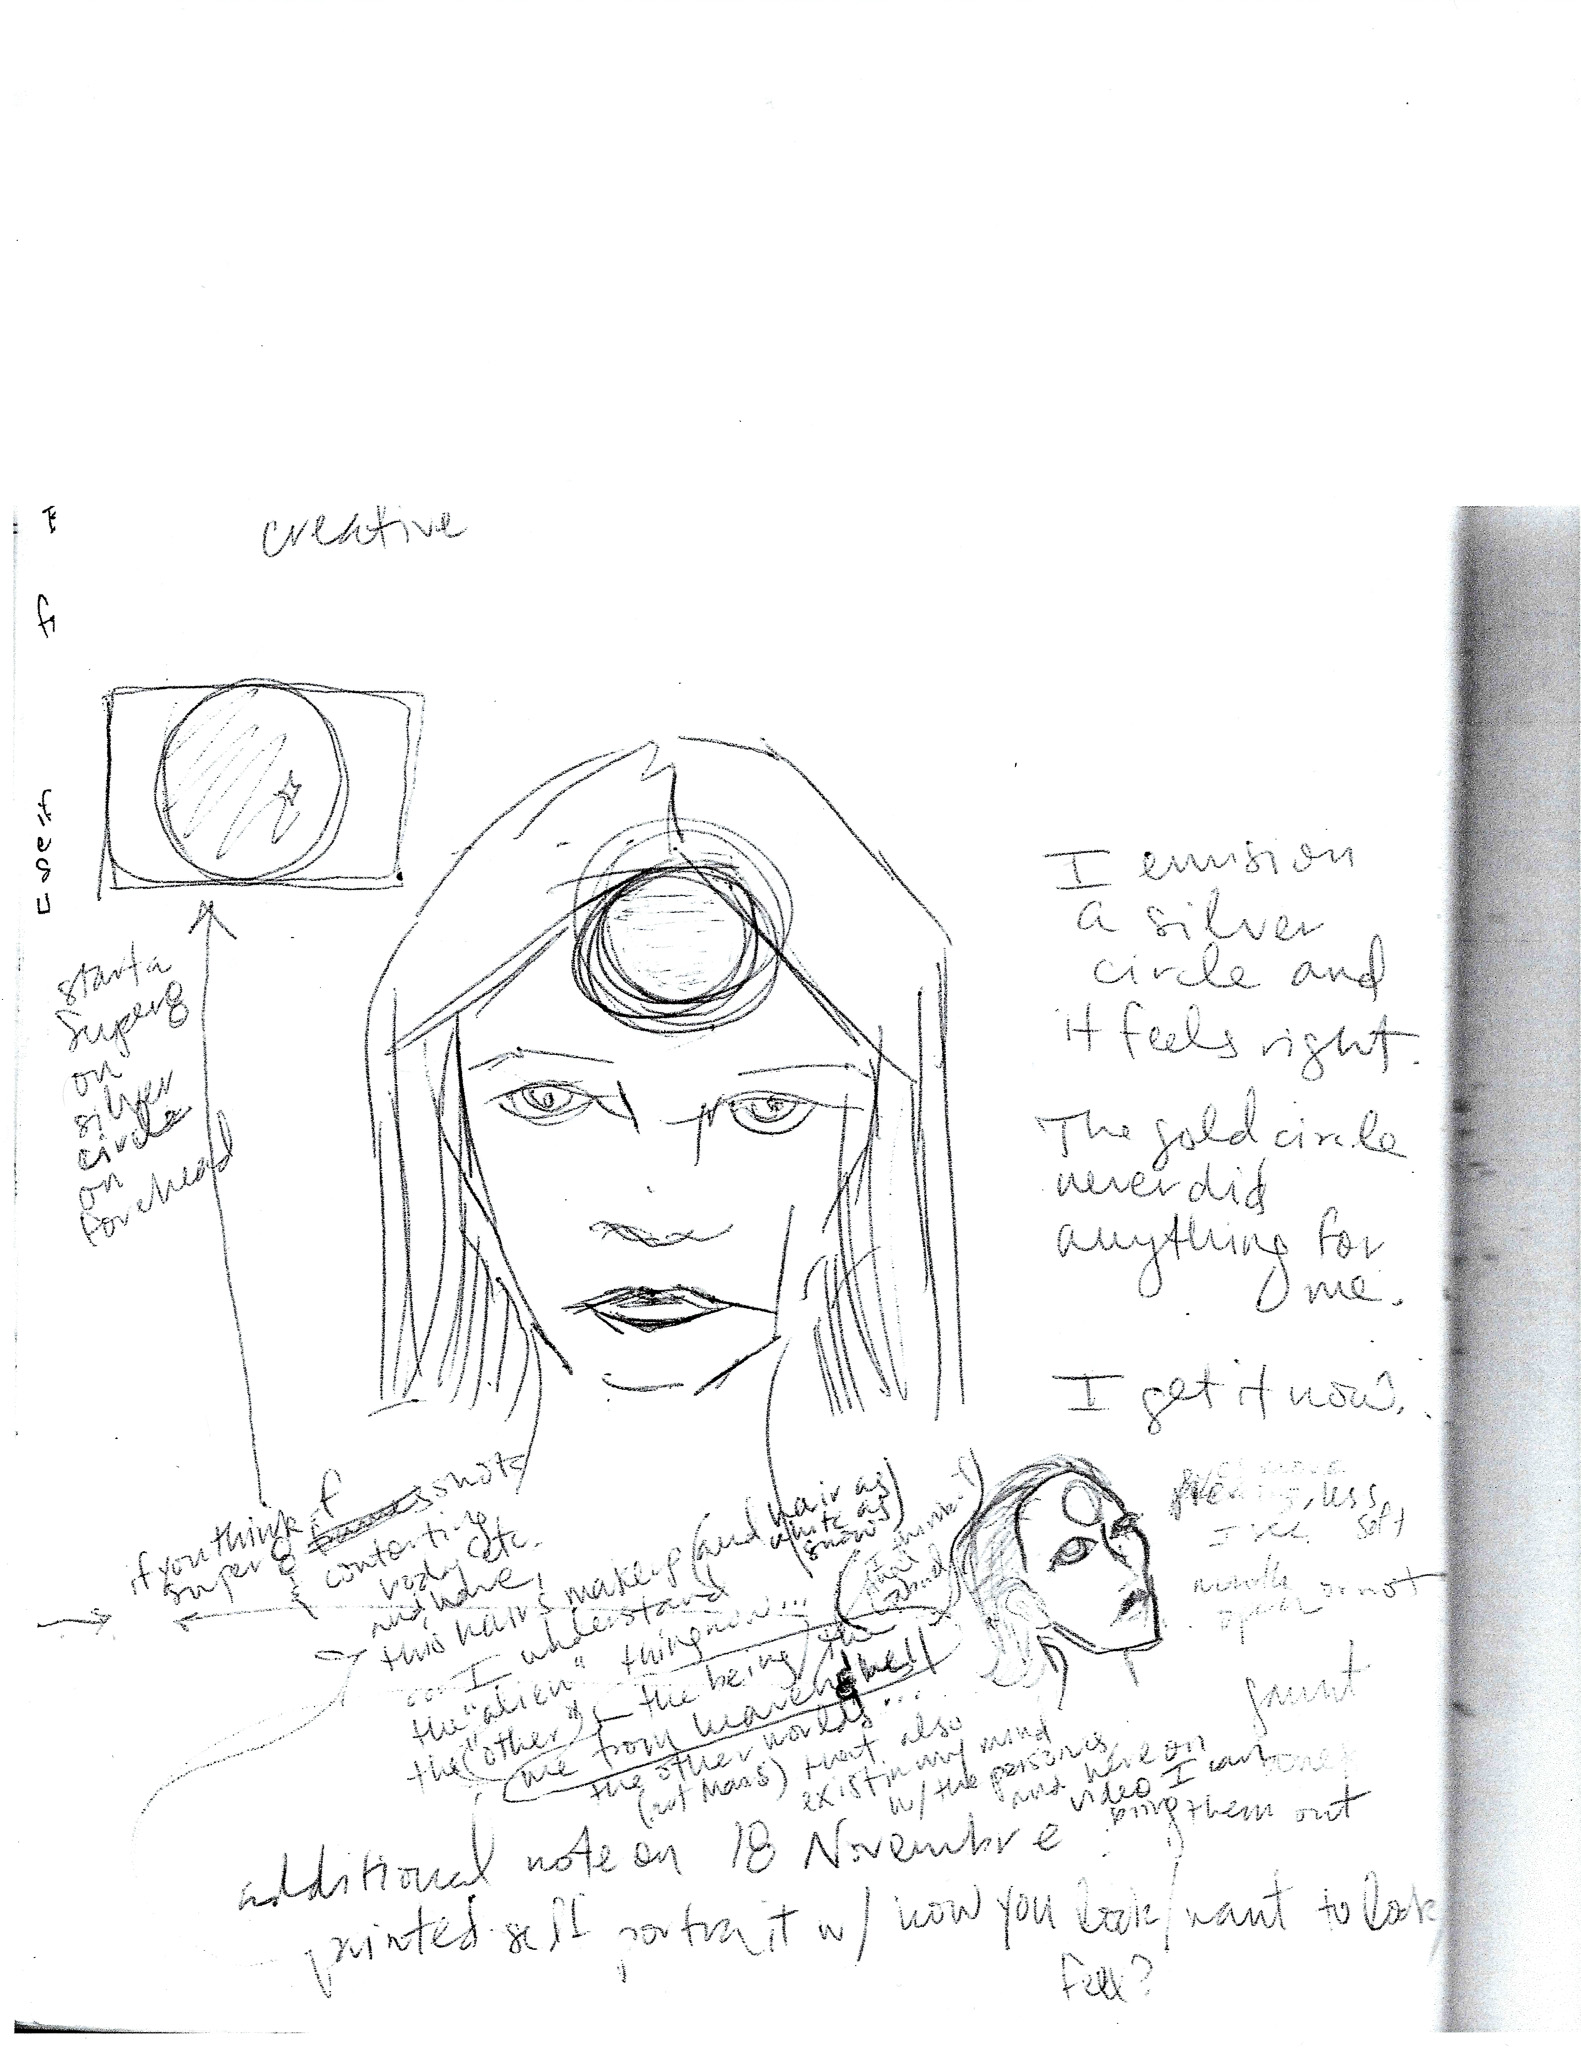 creative
I envision
a silver
circle and
it feels right.
The gold circle
never did
anything for
me.
I get it now.
start a
super 8
on
silver
circle
on
forehead
if you think of
super 8 shots
contorting
body etc.
and have
this hair & makeup (and hair as
white as
snow)
... I understand
the "alien" thing now...
the "other", the being/the
me from heaven/hell
the other worlds...
(not Mars) that also
exist in my mind
w/ the persons
and here on
video I can
bring them out
less
soft
or not
open
gaunt
additional note on 18 Novembre
painted self portrait w/ how you look/want to look
feel?